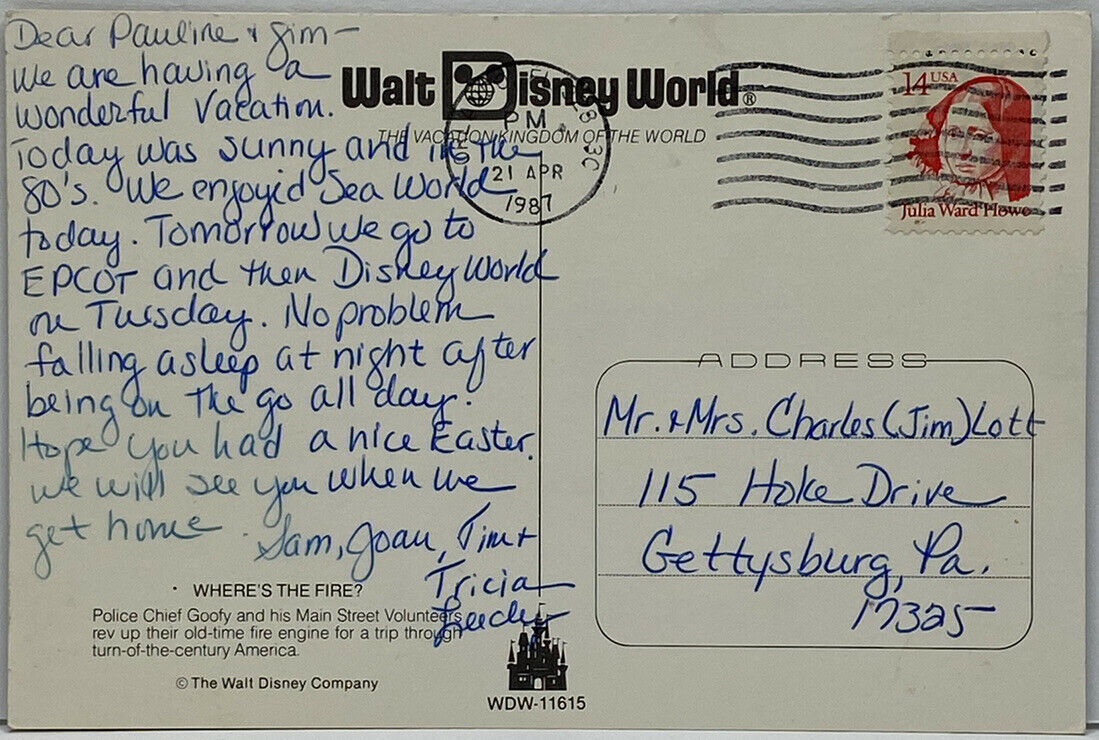 Dear Pauline & Jim-
We are having a
wonderful vacation.
Today was sunny and in the
80's. We enjoyid Sea World
today. Tomorrow we go to
EPCOT and then Disney World
on Tuesday. No problem
falling asleep at night after
being on the go all day!
Hope you had a nice Easter.
We will see you when we
get home.
Sam, Joan, Tim &
Tricia
WHERE'S THE FIRE?
Police Chief Goofy and his Main Street Volunteers
rev up their old-time fire engine for a trip through
turn-of-the-century America.
© The Walt Disney Company
WDW-11615
Walt Disney World®
THE VACATION KINGDOM OF THE WORLD
PM
21 APR
1987
14 USA
Julia Ward Howe
ADDRESS
Mr. & Mrs. Charles (Jim) Lott
115 Hoke Drive
Gettysburg, Pa.
17325